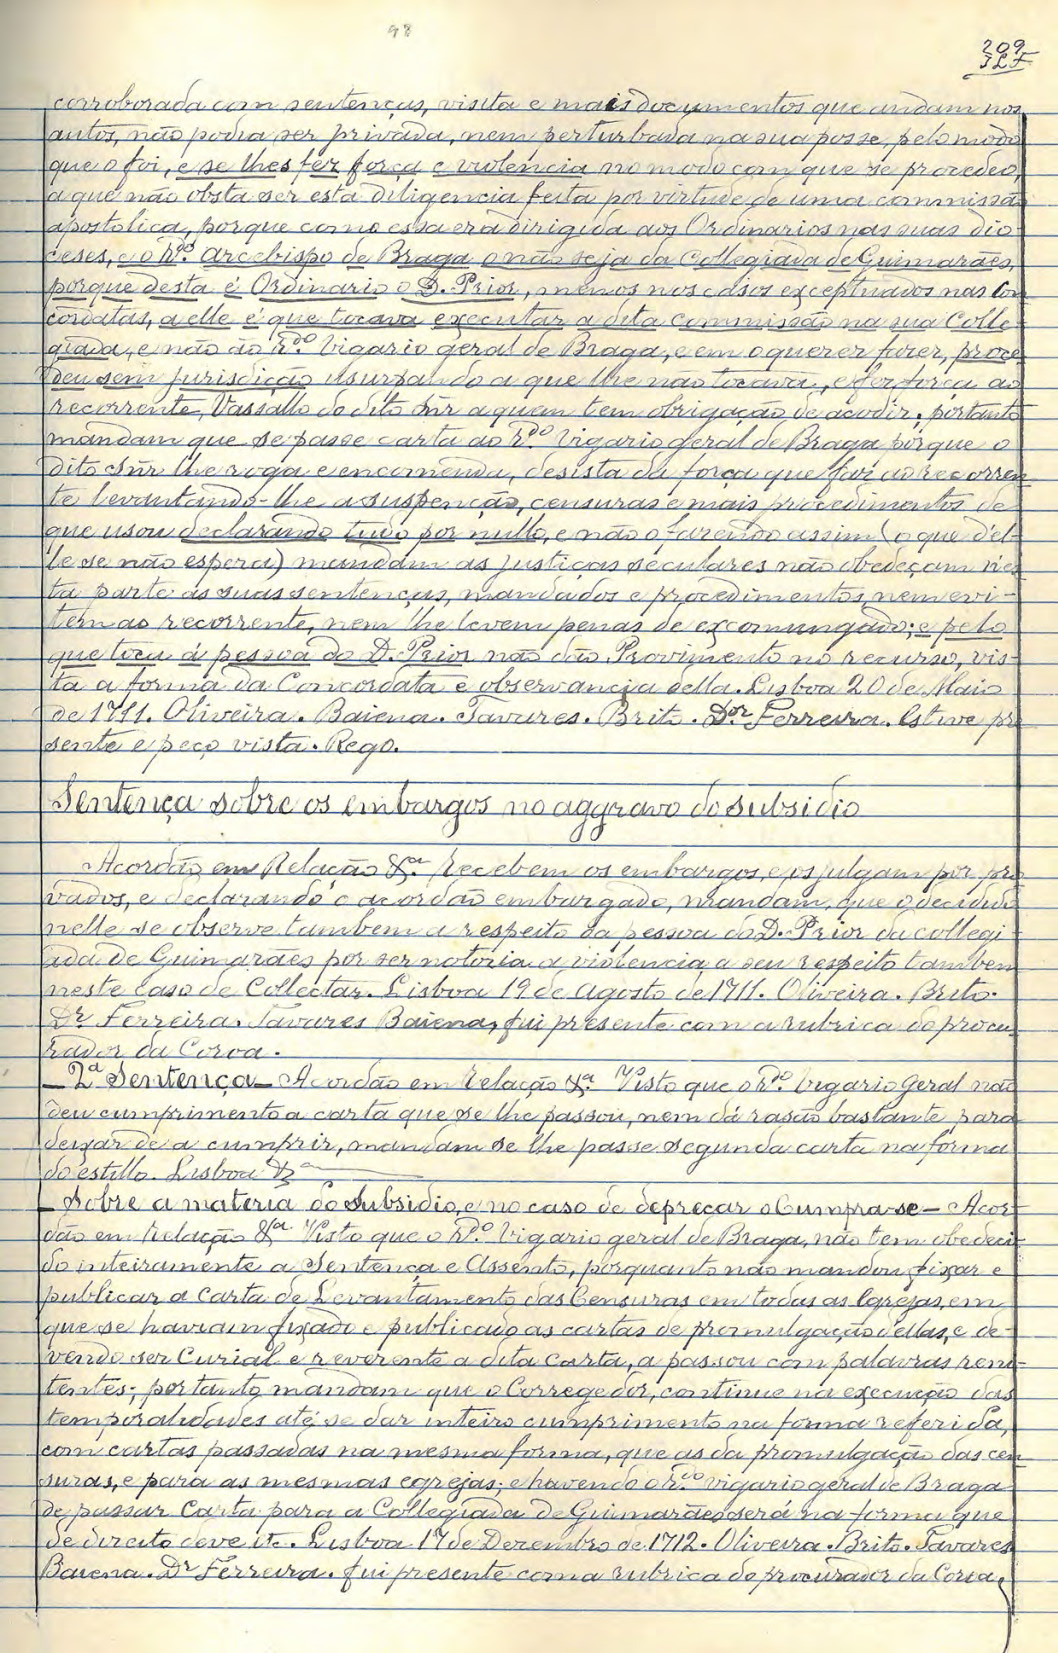 98
209
JLF
corroborada com sentenças, visita e mais documentos que andam nos
autos, não podia ser privada, nem perturbada na sua posse, pelo modo
que o foi, e se lhes fez força e violencia no modo com que se procedeo,
a que não obsta ser esta diligencia feita por virtude de uma commissão
apostolica, porque como essa era dirigida aos Ordinarios nas suas dio-
ceses, e o Rdo. Arcebispo de Braga o não seja da Collegiada de Guimarães,
porque desta é Ordinario o D. Prior, menos nos casos exceptuados nas Con
cordatas, a elle é que tocava executar a dita commissão na sua Colle-
giada, e não ão Rdo. Vigario geral de Braga, e em o querer fazer, proce
deu sem jurisdição usurpando a que lhe não tocava, e fez força ao
recorrente, Vassallo do dito Snr a quem tem obrigação de acodir; portanto
mandam que se passe carta ao Rdo. Vigario geral de Braga porque o
dito Snr lhe roga e encomenda, desista da força que faz ao recorren
te levantando-lhe a suspenção, censuras e mais procedimentos de
que usou declarando tudo por nullo, e não o fazendo assim (o que d'el-
le se não espera) mandam as justiças seculares não obedeçam nes
ta parte ás suas sentenças, mandados e procedimentos, nem evi-
tem ao recorrente, nem lhe levem penas de excomungado; e pelo
que toca á pessoa do D. Prior não dão Provimento no recurso, vis-
ta a forma da Concordata e observancia della. Lisboa 20 de Maio
de 1711. Oliveira. Baiena. Tavares. Brito. Dor Ferreira. Estive pre
sente e peço vista. Rego.
Sentença sobre os embargos no aggravo do subsidio
Acordão em Relação &a. Recebem os embargos, e os julgam por pro
vados, e declarando o acordão embargado, mandam, que o decidido
nelle se observe tambem a respeito da pessoa do D. Prior da collegi-
ada de Guimarães por ser notoria a violencia a seu respeito tambem
neste caso de Collectar. Lisboa 19 de Agosto de 1711. Oliveira. Brito.
Dr. Ferreira. Tavares Baiena, fui presente com a rubrica do procu-
rador da Coroa.
— 2ª Sentença — Acordão em Relação &a. Visto que o Rdo. Vigario Geral não
deu cumprimento a carta que se lhe passou, nem dá rasão bastante para
deixar de a cumprir, mandam se lhe passe segunda carta na forma
do estillo. Lisboa &a
— Sobre a materia do Subsidio, e no caso de deprecar o Cumpra-se — Acor-
dão em Relação &a. Visto que o Rdo. Vigario geral de Braga, não tem obedeci-
do inteiramente a Sentença e Assento, porquanto não mandou fixar e
publicar a Carta de Levantamento das Censuras em todas as Igrejas, em
que se haviam fixado e publicado as cartas de promulgação d'ellas, e de-
vendo ser Curial e reverente a dita carta, a passou com palavras reni-
tentes; portanto mandam que o Corregedor, continue na execução das
temporalidades até se dar inteiro cumprimento na forma referida,
com cartas passadas na mesma forma, que as da promulgação das cen
suras, e para as mesmas egrejas; e havendo o Rdo. vigario geral de Braga
de passar Carta para a Collegiada de Guimarães será na forma que
de direito deve etc. Lisboa 17 de Dezembro de 1712. Oliveira. Brito. Tavares
Baiena. Dr Ferreira. fui presente com a rubrica do procurador da Coroa.